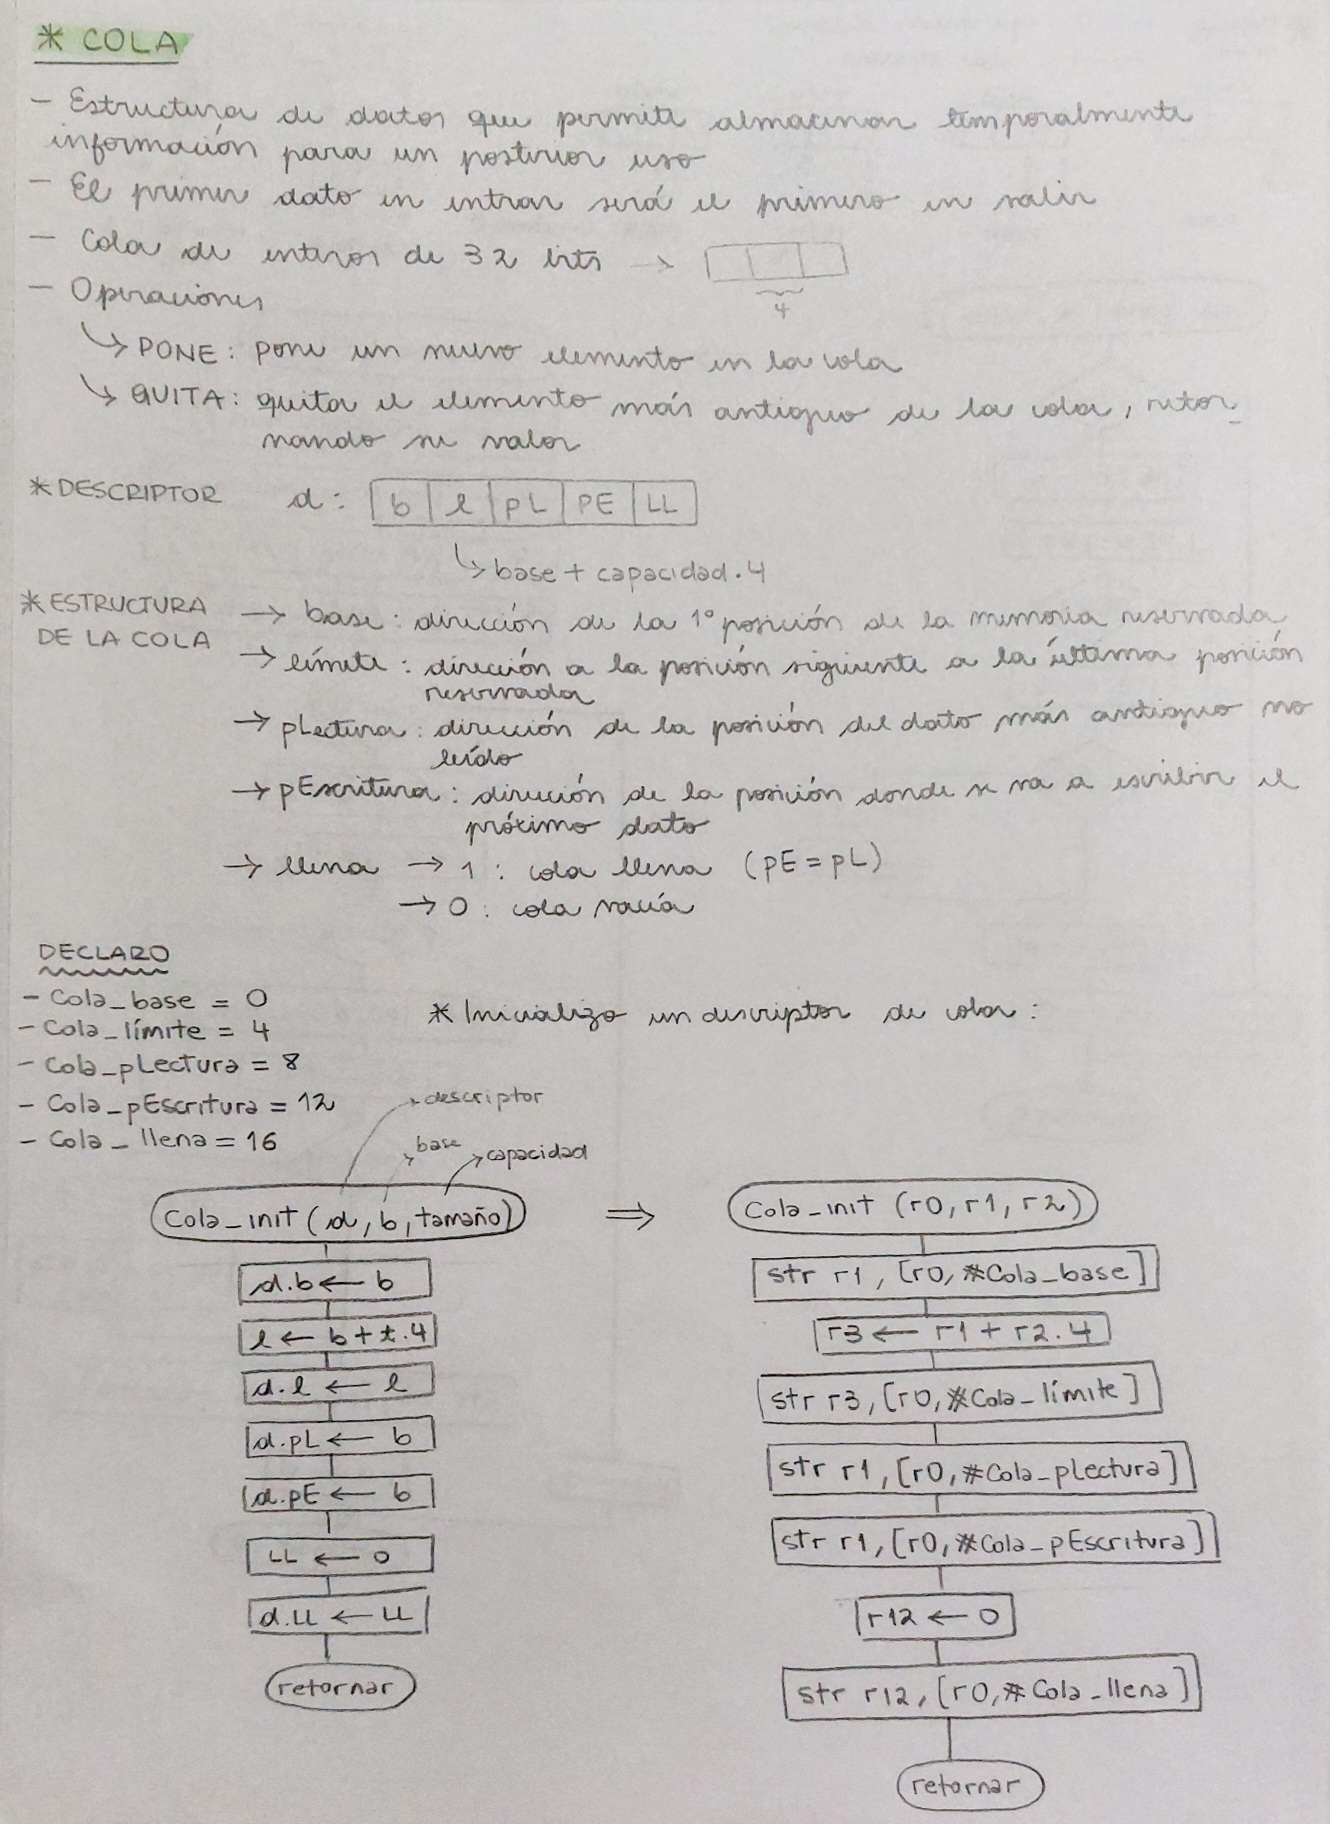 * COLA
- Estructura de datos que permite almacenar temporalmente
información para un posterior uso
- El primer dato en entrar será el primero en salir
- Cola de enteros de 32 bits →
4
- Operaciones
↳ PONE: pone un nuevo elemento en la cola
↳ QUITA: quita el elemento más antiguo de la cola, retor_
nando su valor
* DESCRIPTOR d: b l pL PE LL
↳ base + capacidad.4
* ESTRUCTURA DE LA COLA
→ base: dirección de la 1° posición de la memoria reservada
→ límite: dirección a la posición siguiente a la última posición
reservada
→ pLectura: dirección de la posición del dato más antiguo no
leído
→ pEscritura: dirección de la posición donde se va a escribir el
próximo dato
→ llena → 1: cola llena (pE = pL)
→ 0: cola vacía
DECLARO
- Cola_base = 0
- Cola_límite = 4
- Cola_pLectura = 8
- Cola_pEscritura = 12
- Cola_llena = 16
* Inicializo un descriptor de cola:
descriptor
base
capacidad
Cola_init (d, b, tamaño)
d.b ← b
l ← b + t.4
d.l ← l
d.pL ← b
d.pE ← b
LL ← 0
d.LL ← LL
retornar
⇒
Cola_init (r0, r1, r2)
str r1, [r0, #Cola_base]
r3 ← r1 + r2.4
str r3, [r0, #Cola_límite]
str r1, [r0, #Cola_pLectura]
str r1, [r0, #Cola_pEscritura]
r12 ← 0
str r12, [r0, #Cola_llena]
retornar